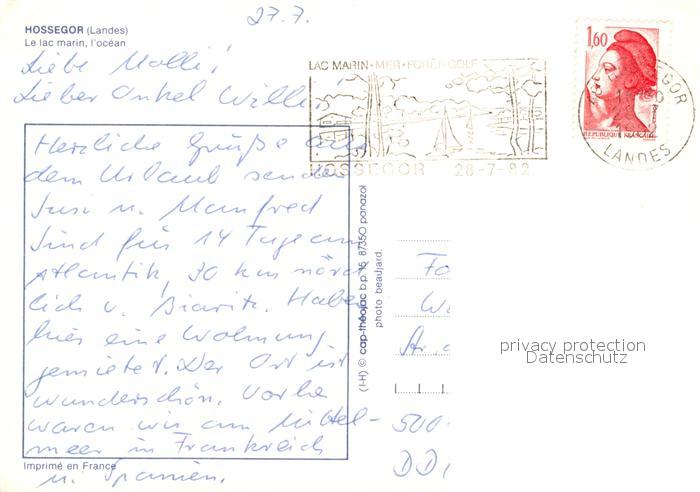 27.7.
HOSSEGOR (Landes)
Le lac marin, l'océan
Liebe Molli!
Lieber Onkel Willi!
Herzliche Grüße aus
dem Urlaub senden
Susi u. Manfred
Sind für 14 Tage am
Atlantik, 30 km nörd
lich v. Biaritz. Haben
hier eine Wohnung
gemietet. Der Ort ist
wunderschön. Vorher
waren wir am Mittel-
meer in Frankreich
u. Spanien.
Imprimé en France
LAC MARIN-MER-FORÊT-GOLF
HOSSEGOR 28-7-82
1,60
REPUBLIQUE FRANÇAISE
LANDES
(I-H) © cap-théojac b.p. 15 87350 panazol
photo beaujard.
Fa
W
Ar.
500
DD
privacy protection
Datenschutz